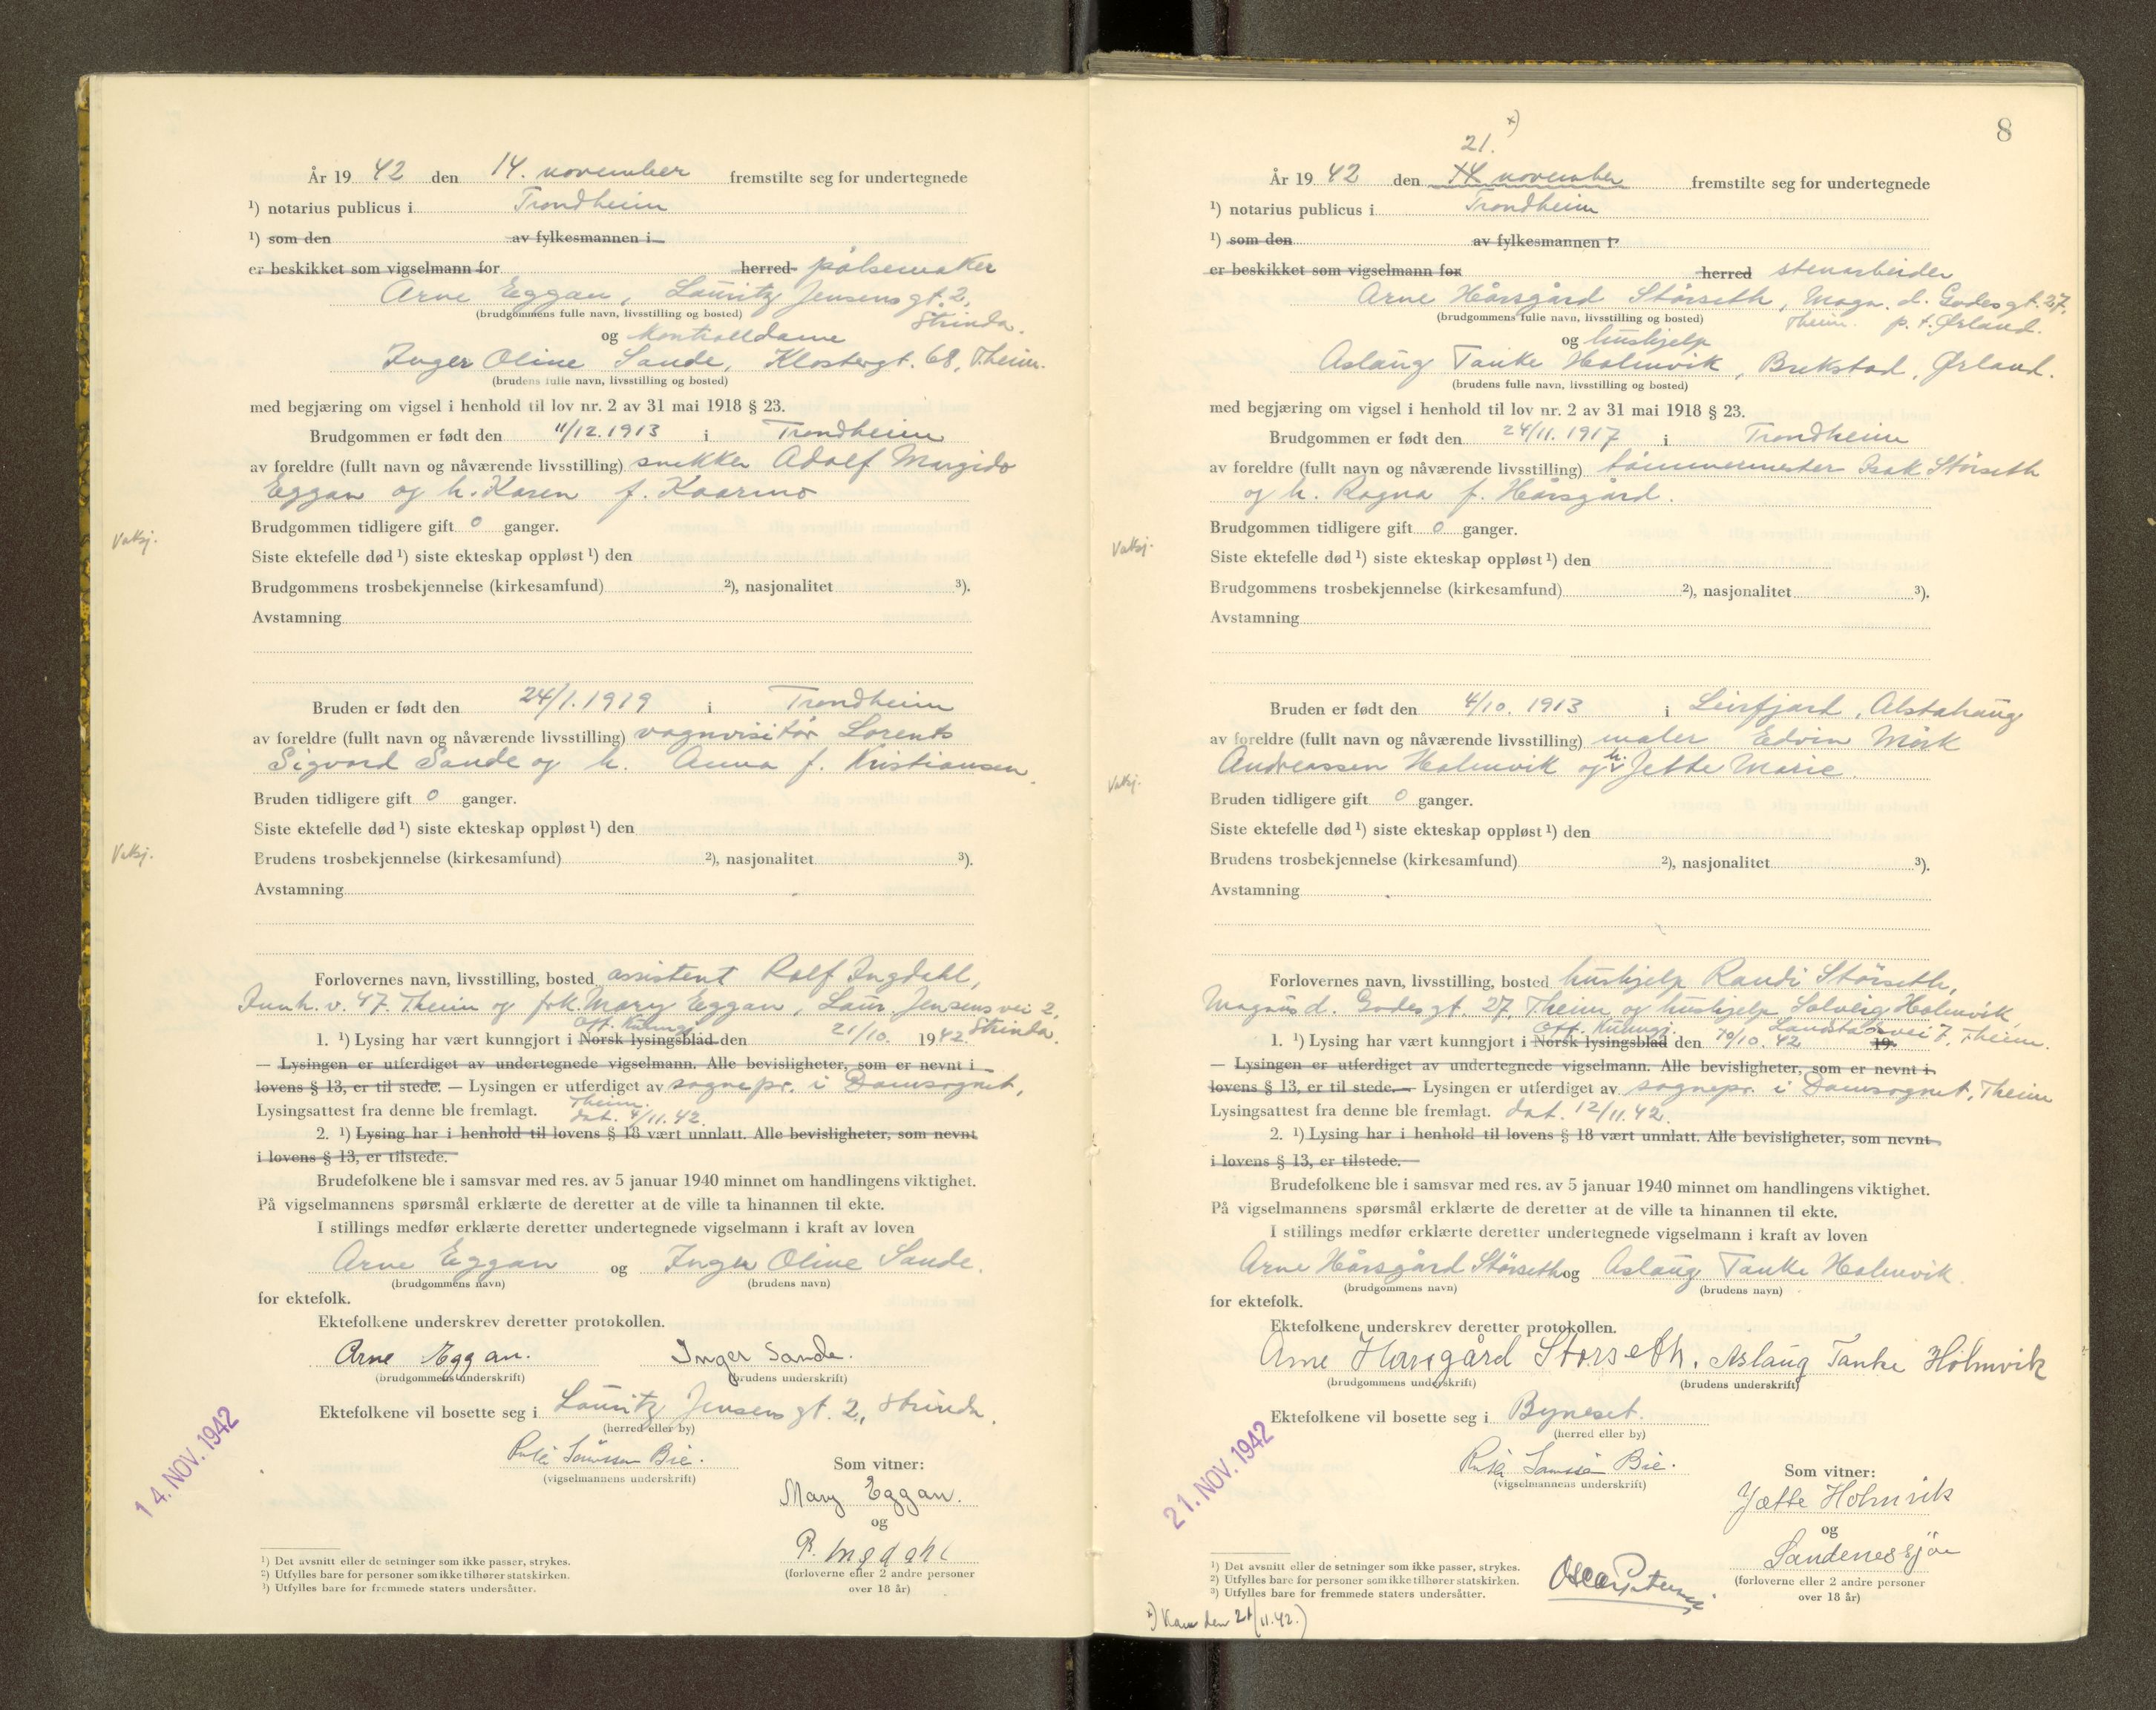 År 19 42 den 14. november fremstilte seg for undertegnede
¹) notarius publicus i Trondheim
¹) som den av fylkesmannen i
er beskikket som vigselmann for herred pølsemaker
Arne Eggan, Lauritz Jensens gt. 2,
(brudgommens fulle navn, livsstilling og bosted) Strinda.
og kontrolldame
Inger Oline Sande, Klostergt. 68, T.heim.
(brudens fulle navn, livsstilling og bosted)
med begjæring om vigsel i henhold til lov nr. 2 av 31 mai 1918 § 23.
Brudgommen er født den 11/12. 1913 i Trondheim
av foreldre (fullt navn og nåværende livsstilling) snekker Adolf Margido
Eggan og h. Karen f. Kaarmo
Brudgommen tidligere gift 0 ganger.
Vaksj.
Siste ektefelle død ¹) siste ekteskap oppløst ¹) den
Brudgommens trosbekjennelse (kirkesamfund) ²), nasjonalitet ³).
Avstamning
Bruden er født den 24/1. 1919 i Trondheim
av foreldre (fullt navn og nåværende livsstilling) vognvisitør Lorents
Sigvard Sande og h. Anna f. Kristiansen.
Bruden tidligere gift 0 ganger.
Siste ektefelle død ¹) siste ekteskap oppløst ¹) den
Vaksj.
Brudens trosbekjennelse (kirkesamfund) ²), nasjonalitet ³).
Avstamning
Forlovernes navn, livsstilling, bosted assistent Rolf Ingdahl,
Innh. v. 47. T.heim og frk. Mary Eggan, Laur. Jensens vei 2,
Off. Kunngj. Strinda.
1. ¹) Lysing har vært kunngjort i Norsk lysingsblad den 21/10. 1942.
— Lysingen er utferdiget av undertegnede vigselmann. Alle bevisligheter, som er nevnt i
lovens § 13, er til stede. — Lysingen er utferdiget av sognepr. i Domsognet,
T.heim.
Lysingsattest fra denne ble fremlagt. dat. 4/11. 42.
2. ¹) Lysing har i henhold til lovens § 18 vært unnlatt. Alle bevisligheter, som nevnt
i lovens § 13, er tilstede.
Brudefolkene ble i samsvar med res. av 5 januar 1940 minnet om handlingens viktighet.
På vigselmannens spørsmål erklærte de deretter at de ville ta hinannen til ekte.
I stillings medfør erklærte deretter undertegnede vigselmann i kraft av loven
Arne Eggan og Inger Oline Sande.
(brudgommens navn) (brudens navn)
for ektefolk.
Ektefolkene underskrev deretter protokollen.
Arne Eggan. Inger Sande.
(brudgommens underskrift) (brudens underskrift)
Ektefolkene vil bosette seg i Lauritz Jensens gt. 2, Strinda.
(herred eller by)
14. NOV. 1942
Bie.
(vigselmannens underskrift)
Som vitner:
Mary Eggan.
og
R. Ingdahl
(forloverne eller 2 andre personer
over 18 år)
¹) Det avsnitt eller de setninger som ikke passer, strykes.
²) Utfylles bare for personer som ikke tilhører statskirken.
³) Utfylles bare for fremmede staters undersåtter.
8
21. x)
År 19 42 den 14 november fremstilte seg for undertegnede
¹) notarius publicus i Trondheim
¹) som den av fylkesmannen i
er beskikket som vigselmann for herred stenarbeider
Arne Hårsgård Størseth, Magn. d. Godes gt. 27,
(brudgommens fulle navn, livsstilling og bosted) T.heim. p. t. Ørland.
og hushjelp
Aslaug Tanke Holmvik, Brekstad, Ørland.
(brudens fulle navn, livsstilling og bosted)
med begjæring om vigsel i henhold til lov nr. 2 av 31 mai 1918 § 23.
Brudgommen er født den 24/11. 1917 i Trondheim
av foreldre (fullt navn og nåværende livsstilling) tømmermester Isak Størseth
og h. Ragna f. Hårsgård.
Brudgommen tidligere gift 0 ganger.
Vaksj.
Siste ektefelle død ¹) siste ekteskap oppløst ¹) den
Brudgommens trosbekjennelse (kirkesamfund) ²), nasjonalitet ³).
Avstamning
Bruden er født den 4/10. 1913 i Leirfjord, Alstahaug
av foreldre (fullt navn og nåværende livsstilling) maler Edvin Mörk
Andreassen Holmvik og h. Jette Marie.
Vaksj.
Bruden tidligere gift 0 ganger.
Siste ektefelle død ¹) siste ekteskap oppløst ¹) den
Brudens trosbekjennelse (kirkesamfund) ²), nasjonalitet ³).
Avstamning
Forlovernes navn, livsstilling, bosted hushjelp Randi Størseth,
Magnus d. Godes gt. 27, T.heim og hushjelp Solveig Holmvik,
Off. Kunngj. Landstadsvei 7, T.heim.
1. ¹) Lysing har vært kunngjort i Norsk lysingsblad den 10/10. 42 19
— Lysingen er utferdiget av undertegnede vigselmann. Alle bevisligheter, som er nevnt i
lovens § 13, er til stede. — Lysingen er utferdiget av sognepr. i Domsognet, T.heim
Lysingsattest fra denne ble fremlagt. dat. 12/11. 42.
2. ¹) Lysing har i henhold til lovens § 18 vært unnlatt. Alle bevisligheter, som nevnt
i lovens § 13, er tilstede.
Brudefolkene ble i samsvar med res. av 5 januar 1940 minnet om handlingens viktighet.
På vigselmannens spørsmål erklærte de deretter at de ville ta hinannen til ekte.
I stillings medfør erklærte deretter undertegnede vigselmann i kraft av loven
Arne Hårsgård Størseth og Aslaug Tanke Holmvik.
(brudgommens navn) (brudens navn)
for ektefolk.
Ektefolkene underskrev deretter protokollen.
Arne Hårsgård Størseth. Aslaug Tanke Holmvik
(brudgommens underskrift) (brudens underskrift)
Ektefolkene vil bosette seg i Byneset.
(herred eller by)
21. NOV. 1942
Bie.
(vigselmannens underskrift)
Som vitner:
Jette Holmvik
og
Sandenessjøe
(forloverne eller 2 andre personer
over 18 år)
¹) Det avsnitt eller de setninger som ikke passer, strykes.
²) Utfylles bare for personer som ikke tilhører statskirken.
³) Utfylles bare for fremmede staters undersåtter.
x) Kom den 21/11. 42.)